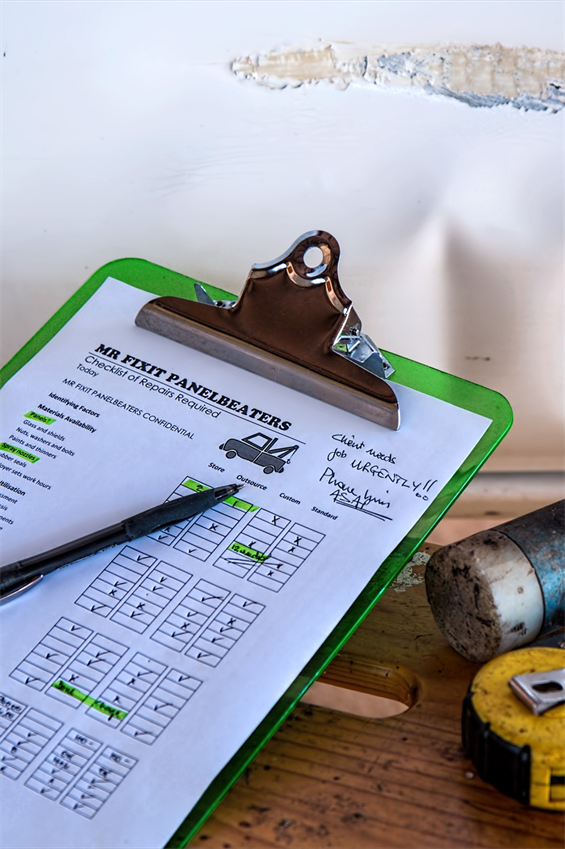 MR FIXIT PANELBEATERS
Checklist of Repairs Required
Today
MR FIXIT PANELBEATERS CONFIDENTIAL
Identifying Factors
Materials Availability
Panels!
Glass and shields
Nuts, washers and bolts
Paints and thinners
Spray nozzles!
ber seals
oyer sets work hours
ilisation
essment
Store Outsource Custom Standard
Client needs
job URGENTLY!!
Phone him
ASAP